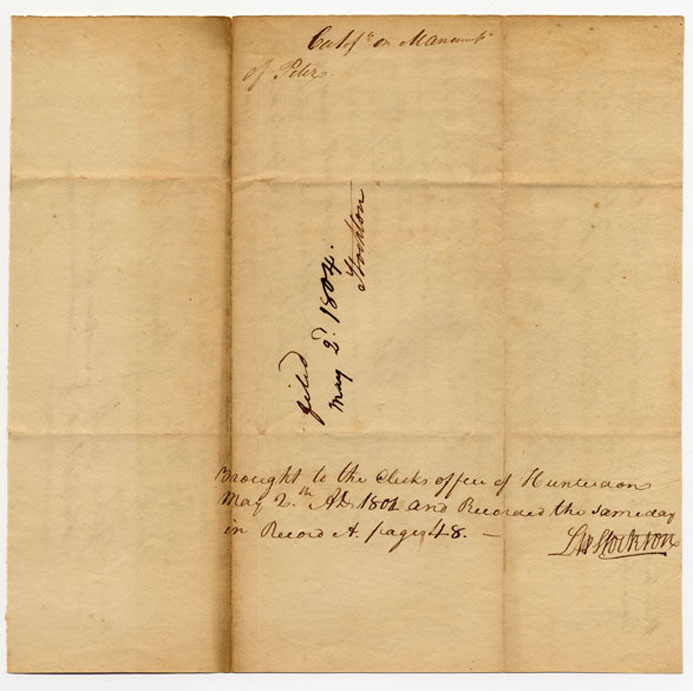 Certifte on Manumt
of Peter.
filed
May 2d. 1804.
Stockton
Brought to the Clerks office of Hunterdon
May 2.th AD 1804 and Recorded the same day
in Record A. page 48. —
LHStockton